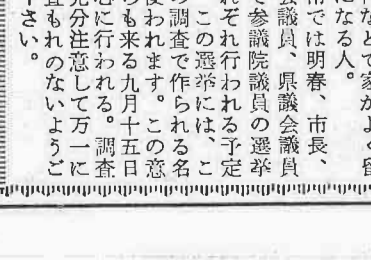 などで家がよく留
になる人。
市では明春、市長、
会議員、県議会議員
て参議院議員の選挙
れぞれ行われる予定
この選挙には、こ
の調査で作られる名
使われます。この意
らも来る九月十五日
心に行われる。調査
充分注意して万一に
査もれのないようご
下さい。